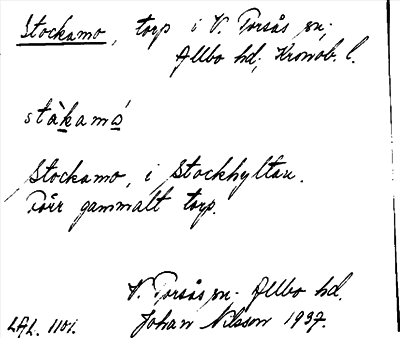 Stockamo, torp i V. Torsås sn;
Allbo hd; Kronob. l.
stàkamó
Stockamo, i Stockhyltan.
Förr gammalt torp.
V. Torsås sn. Allbo hd.
LAL. 1101. Johan Nilsson 1937.